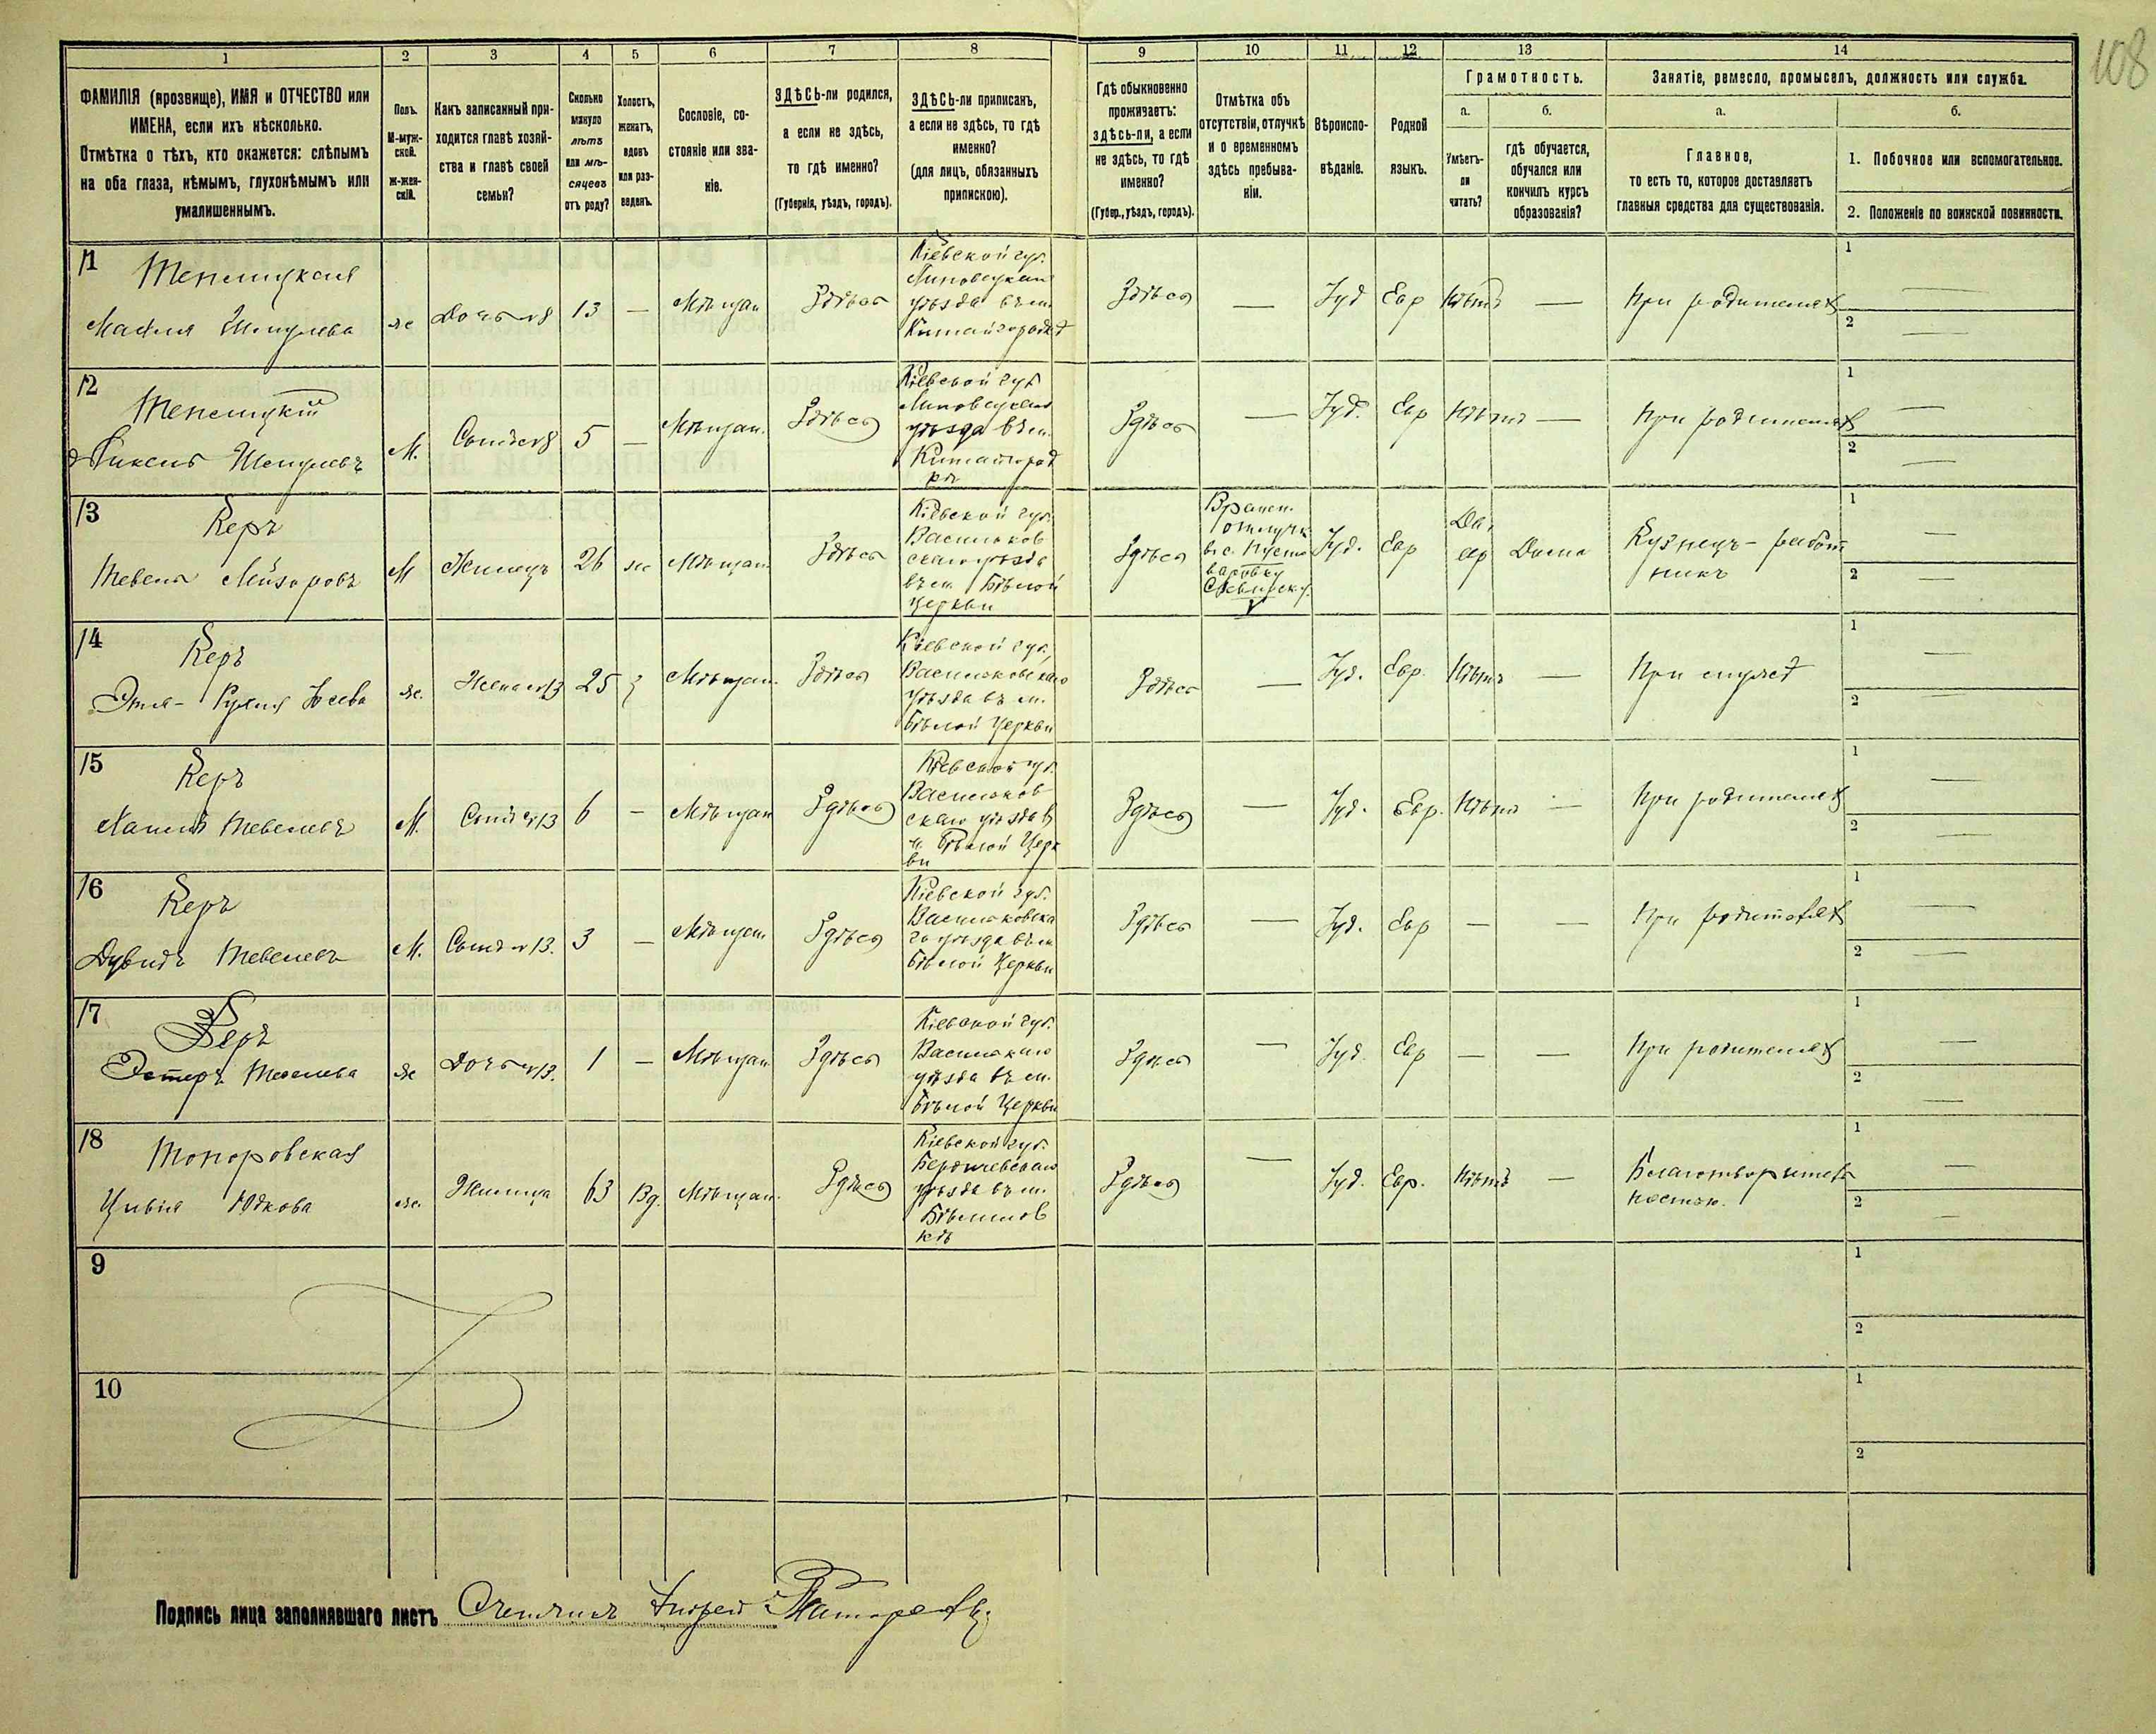 108
1 2 3 4 5 6 7 8 9 10 11 12 13 14
ФАМИЛІЯ (прозвище), ИМЯ и ОТЧЕСТВО или
ИМЕНА, если ихъ нѣсколько.
Отмѣтка о тѣхъ, кто окажется: слѣпымъ
на оба глаза, нѣмымъ, глухонѣмымъ или
умалишеннымъ.
Полъ.
М-муж-
ской.
Ж-жен-
скій.
Какъ записанный при-
ходится главѣ хозяй-
ства и главѣ своей
семьи?
Сколько
минуло
лѣтъ
или мѣ-
сяцевъ
отъ роду?
Холостъ,
женатъ,
вдовъ
или раз-
веденъ.
Сословіе, со-
стояніе или зва-
ніе.
ЗДѢСЬ-ли родился,
а если не здѣсь,
то гдѣ именно?
(Губернія, уѣздъ, городъ).
ЗДѢСЬ-ли приписанъ,
а если не здѣсь, то гдѣ
именно?
(для лицъ, обязанныхъ
припискою).
Гдѣ обыкновенно
проживаетъ:
здѣсь-ли, а если
не здѣсь, то гдѣ
именно?
(Губер., уѣздъ, городъ).
Отмѣтка объ
отсутствіи, отлучкѣ
и о временномъ
здѣсь пребыва-
ніи.
Вѣроиспо-
вѣданіе.
Родной
языкъ.
Грамотность.
а.
Умѣетъ-
ли
читать?
б.
гдѣ обучается,
обучался или
кончилъ курсъ
образованія?
Занятіе, ремесло, промыселъ, должность или служба.
а.
Главное,
то есть то, которое доставляетъ
главныя средства для существованія.
б.
1. Побочное или вспомогательное.
2. Положеніе по воинской повинности.
11
Тепецкая
ж
Дочь 8
13
—
Мѣщан
Здѣсь
Кіевской губ.
Липовецкаго
уѣзда въ м.
Китайгородѣ
Здѣсь
—
Іуд
Евр
Нѣтъ
—
При родителях
1 —
2 —
12
М.
Сынъ 8
5
—
Мѣщан.
Здѣсь
Кіевской губ
Липовецкаго
уѣзда въ м.
Китайгород
Здѣсь
—
Іуд.
Евр
Нѣтъ
—
При родителях
1 —
2 —
13
Керъ
Тевель
М
Жилецъ
26
ж
Мѣщан.
Здѣсь
Кіевской губ.
Васильков
скаго уѣзда
въ м. Бѣлой
Церкви
Здѣсь
Времен.
отлучк
в с. Пусто
варовку
Сквирск у.
Іуд.
Евр
Да,
евр
Дома
Кузнецъ - работ
никъ
1 —
2 —
14
Керъ
ж.
Жена 13
25
Мѣщан.
Здѣсь
Кіевской губ.
Васильковскаго
уѣзда въ м.
Бѣлой Церкви
Здѣсь
—
Іуд.
Евр.
Нѣтъ
—
При мужѣ
1 —
2 —
15
Керъ
Тевелевъ
М.
Сынъ 13
6
—
Мѣщан
Здѣсь
Кіевской губ.
Васильков
скаго уѣзда в
м. Бѣлой Церк
ви
Здѣсь
—
Іуд.
Евр.
Нѣтъ
—
При родителях
1 —
2 —
16
Керъ
Дувидъ Тевелевъ
М.
Сынъ 13.
3
—
Мѣщан
Здѣсь
Кіевской губ.
Васильковска
го уѣзда въ м.
Бѣлой Церкви
Здѣсь
—
Іуд.
Евр
—
—
При родителях
1 —
2 —
17
Керъ
Эстеръ Тевелева
ж
Дочь 13.
1
—
Мѣщан
Здѣсь
Кіевской губ.
уѣзда въ м.
Бѣлой Церкви
Здѣсь
—
Іуд.
Евр
—
—
При родителях
1 —
2 —
18
Топоровская
Цивія Юдкова
ж.
Жилица
63
Вд.
Мѣщан.
Здѣсь
Кіевской губ.
Бердичевскаго
уѣзда въ м.
Бѣлилов
кѣ
Здѣсь
—
Іуд.
Евр.
Нѣтъ
—
Благотворитель
ностью.
1 —
2 —
9
1
2
10
1
2
Подпись лица заполнявшаго листъ Счетчикъ Андрей